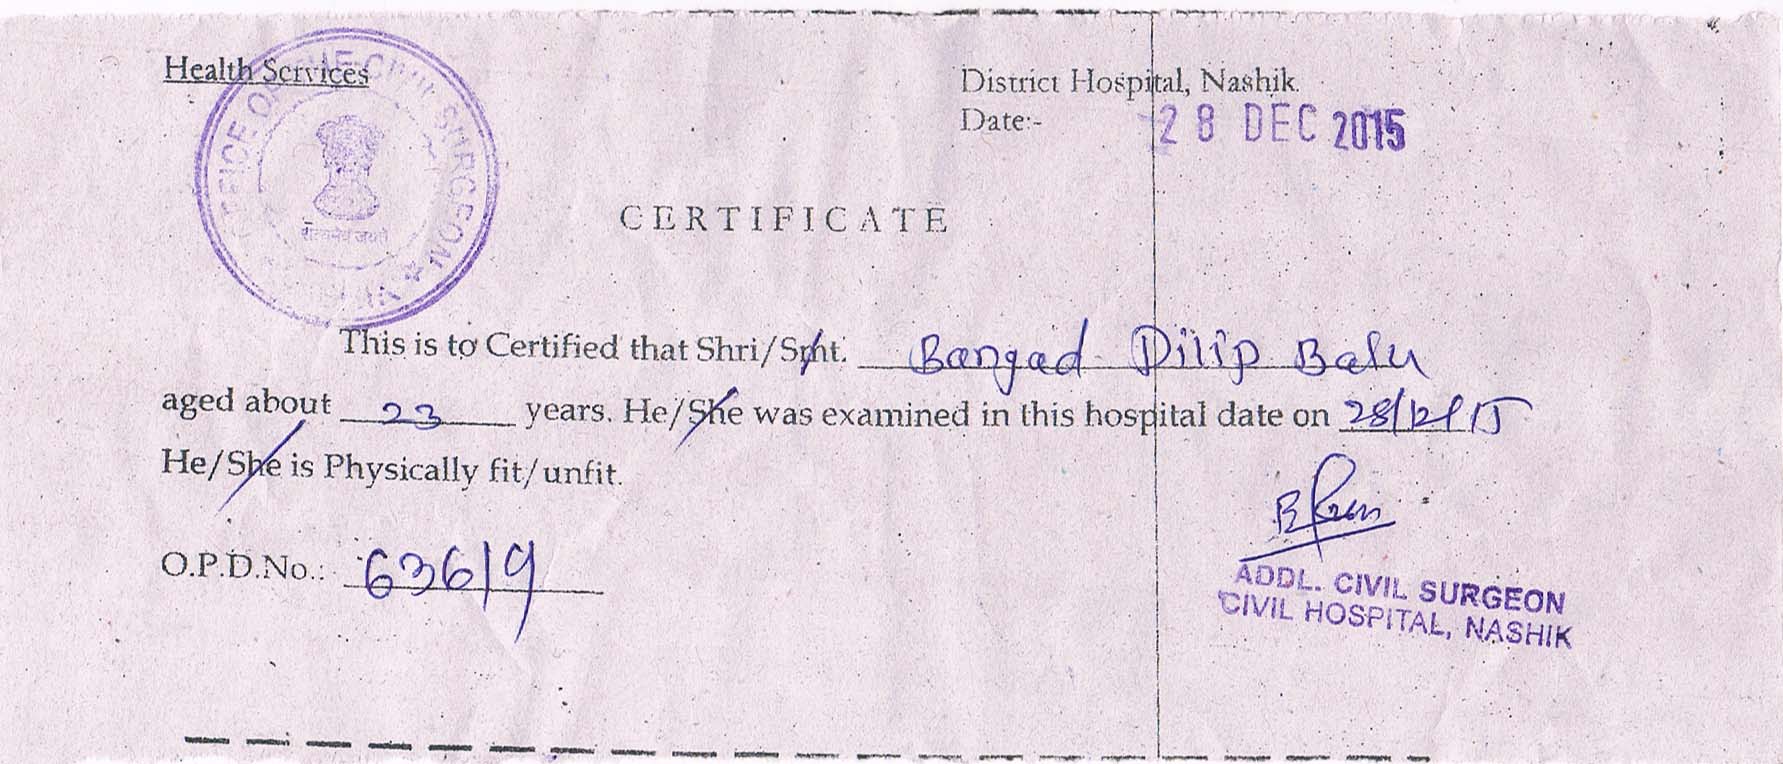 Health Services
District Hospital, Nashik.
Date:- 28 DEC 2015
OFFICE OF THE CIVIL SURGEON
सत्यमेव जयते
CERTIFICATE
This is to Certified that Shri/Smt. Bangad Dilip Balu
aged about 23 years. He/She was examined in this hospital date on 28/12/15
He/She is Physically fit/unfit.
O.P.D.No.: 63619
ADDL. CIVIL SURGEON
CIVIL HOSPITAL, NASHIK